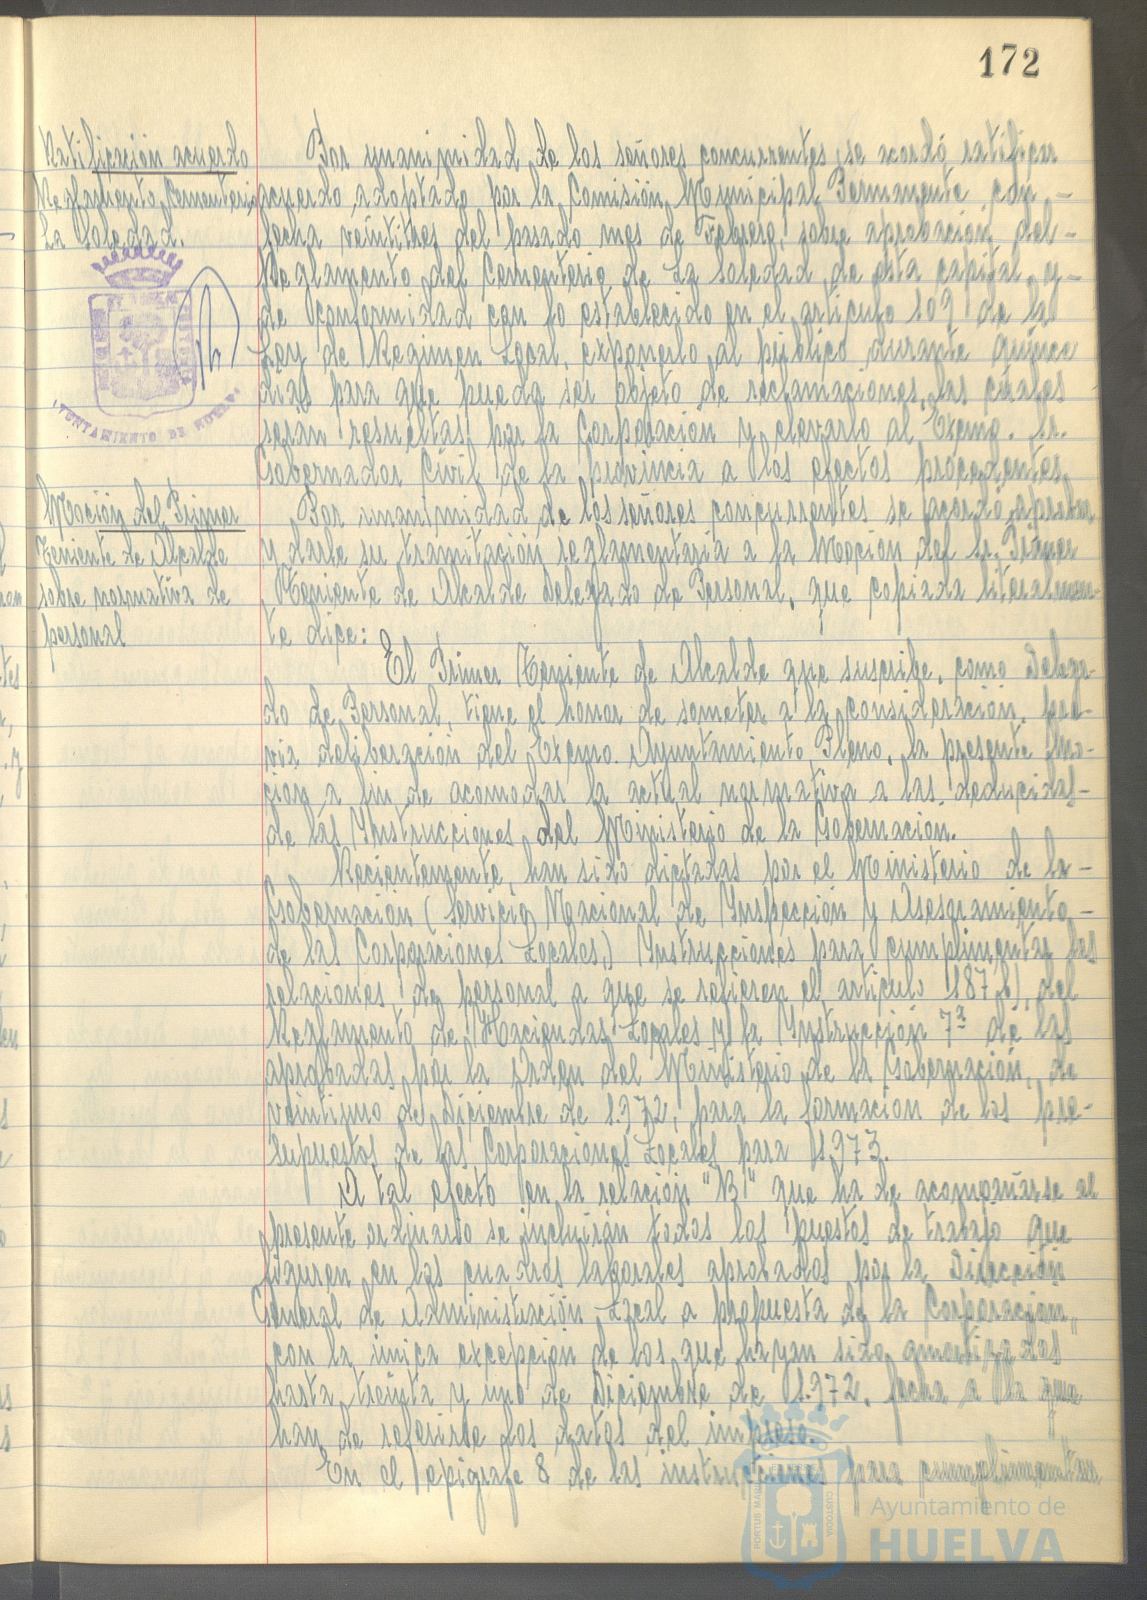 172
Ratificación acuerdo
Reglamento Cementerio
La Soledad.
AYUNTAMIENTO DE HUELVA
Por unanimidad de los señores concurrentes, se acordó ratificar
acuerdo adoptado por la Comisión Municipal Permanente con -
fecha veintitres del pasado mes de Febrero, sobre aprobación del -
Reglamento del Cementerio de La Soledad de esta capital y -
de conformidad con lo establecido en el artículo 109 de la
Ley de Regimen Local, exponerlo al público durante quince
dias para que pueda ser objeto de reclamaciones, las cuales
seran resueltas por la Corporación y elevarlo al Excmo. Sr.
Gobernador Civil de la provincia a los efectos procedentes.
Moción del Primer
Teniente de Alcalde
sobre normativa de
personal
Por unanimidad de los señores concurrentes se acordó aprobar
y darle su tramitación reglamentaria a la Moción del Sr. Primer
Teniente de Alcalde Delegado de Personal, que copiada literalmen-
te dice:
El Primer Teniente de Alcalde que suscribe, como Delega-
do de Personal, tiene el honor de someter a la consideración, pre-
via deliberación del Excmo. Ayuntamiento Pleno, la presente Mo-
ción a fin de acomodar la actual normativa a las deducidas -
de las Instrucciones del Ministerio de la Gobernación.
Recientemente, han sido dictadas por el Ministerio de la -
Gobernación (Servicio Nacional de Inspección y Asesoramiento -
de las Corporaciones Locales,) Instrucciones para cumplimentar las
relaciones de personal a que se refieren el artículo 187,b), del
Reglamento de Haciendas Locales y la Instrucción 7ª de las
aprobadas por la Orden del Ministerio de la Gobernación, de
veintiuno de Diciembre de 1.972, para la formación de los pre-
supuestos de las Corporaciones Locales para 1.973.
A tal efecto en la relación "B1" que ha de acompañarse al
presente ordinario se incluirán todos los puestos de trabajo que
figuren en los cuadros laborales aprobados por la Dirección
General de Administración Local a propuesta de la Corporación,
con la única excepción de los que hayan sido amortizados
hasta treinta y uno de Diciembre de 1.972, fecha a la que
han de referirse los datos del impreso.
En el epígrafe 8 de las instrucciones para cumplimentar
PORTUS MARIS CUSTODIA
Ayuntamiento de
HUELVA